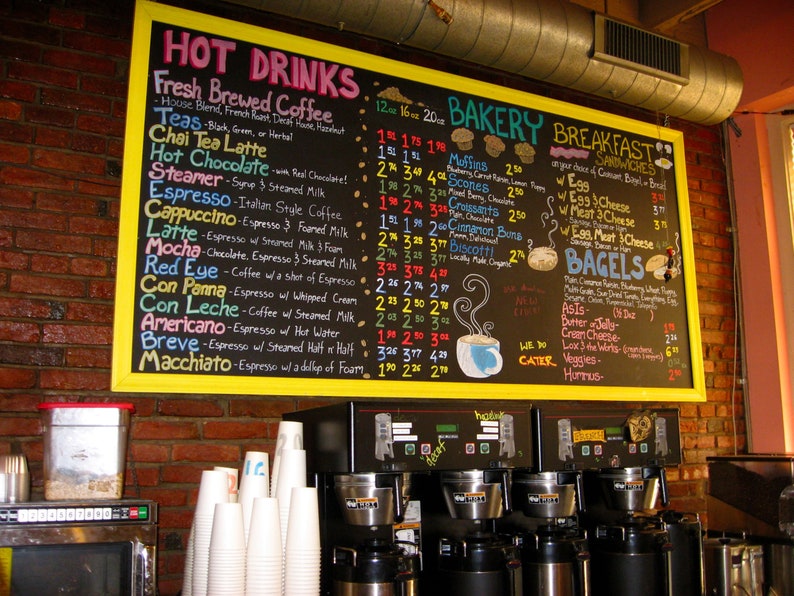 HOT DRINKS
Fresh Brewed Coffee
- House Blend, French Roast, Decaf House, Hazelnut
Teas - Black, Green, or Herbal
Chai Tea Latte
Hot Chocolate - with Real Chocolate!
Steamer - Syrup & Steamed Milk
Espresso - Italian Style Coffee
Cappuccino - Espresso & Foamed Milk
Latte - Espresso w/ Steamed Milk & Foam
Mocha - Chocolate, Espresso & Steamed Milk
Red Eye - Coffee w/ a shot of Espresso
Con Panna - Espresso w/ Whipped Cream
Con Leche - Espresso w/ Steamed Milk
Americano - Espresso w/ Hot Water
Breve - Espresso w/ Steamed Half n' Half
Macchiato - Espresso w/ a dollop of Foam
12oz 16oz 20oz
1.51 1.75 1.98
1.51 1.51
2.74 3.49 4.01
1.98 2.74 3.25
1.98 2.74 3.25
1.51 1.98 2.60
2.74 3.25 3.77
2.74 3.25 3.77
3.25 3.75 4.29
2.26
2.23 2.50 2.75
1.98 2.50
3.26 3.77 4.29
1.90 2.26
BAKERY
Muffins 2.50
Blueberry, Carrot Raisin, Lemon Poppy
Scones 2.50
Mixed Berry, Chocolate
Croissants 2.50
Plain, Chocolate
Cinnamon Buns
Mmm, Delicious!
Biscotti 2.74
Locally Made, Organic
NEW
WE DO
CATER
BREAKFAST
SANDWICHES
on your choice of Croissant, Bagel or Bread
w/ Egg
w/ Egg & Cheese
w/ Meat & Cheese
Sausage, Bacon or Ham
w/ Egg, Meat & Cheese
Sausage, Bacon or Ham
BAGELS
Plain, Cinnamon Raisin, Blueberry, Wheat, Poppy,
Multi-Grain, Sun-Dried Tomato, Everything, Egg,
Sesame, Onion, Pumpernickel, Jalapeño
As Is - (½ Doz
Butter or Jelly - 1.75
Cream Cheese - 2.26
Lox & the Works - (cream cheese, capers & veggies) 6.23
Veggies -
Hummus - 2.90
decaf
hazelnut
FRENCH
BUNN
BUNN
BUNN
BUNN
1 2 3 4 5 6 7 8 9 0
12